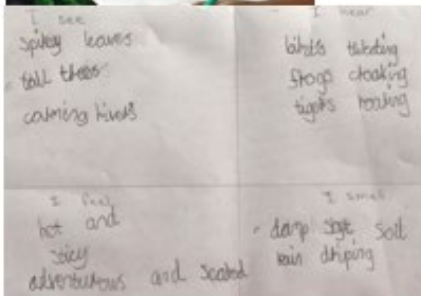 I see
spikey leaves
tall trees
calming rivers
I hear
birds tweeting
frogs croaking
tigers roaring
I feel
hot and
adventurous and scared
I smell
damp soil
rain dripping